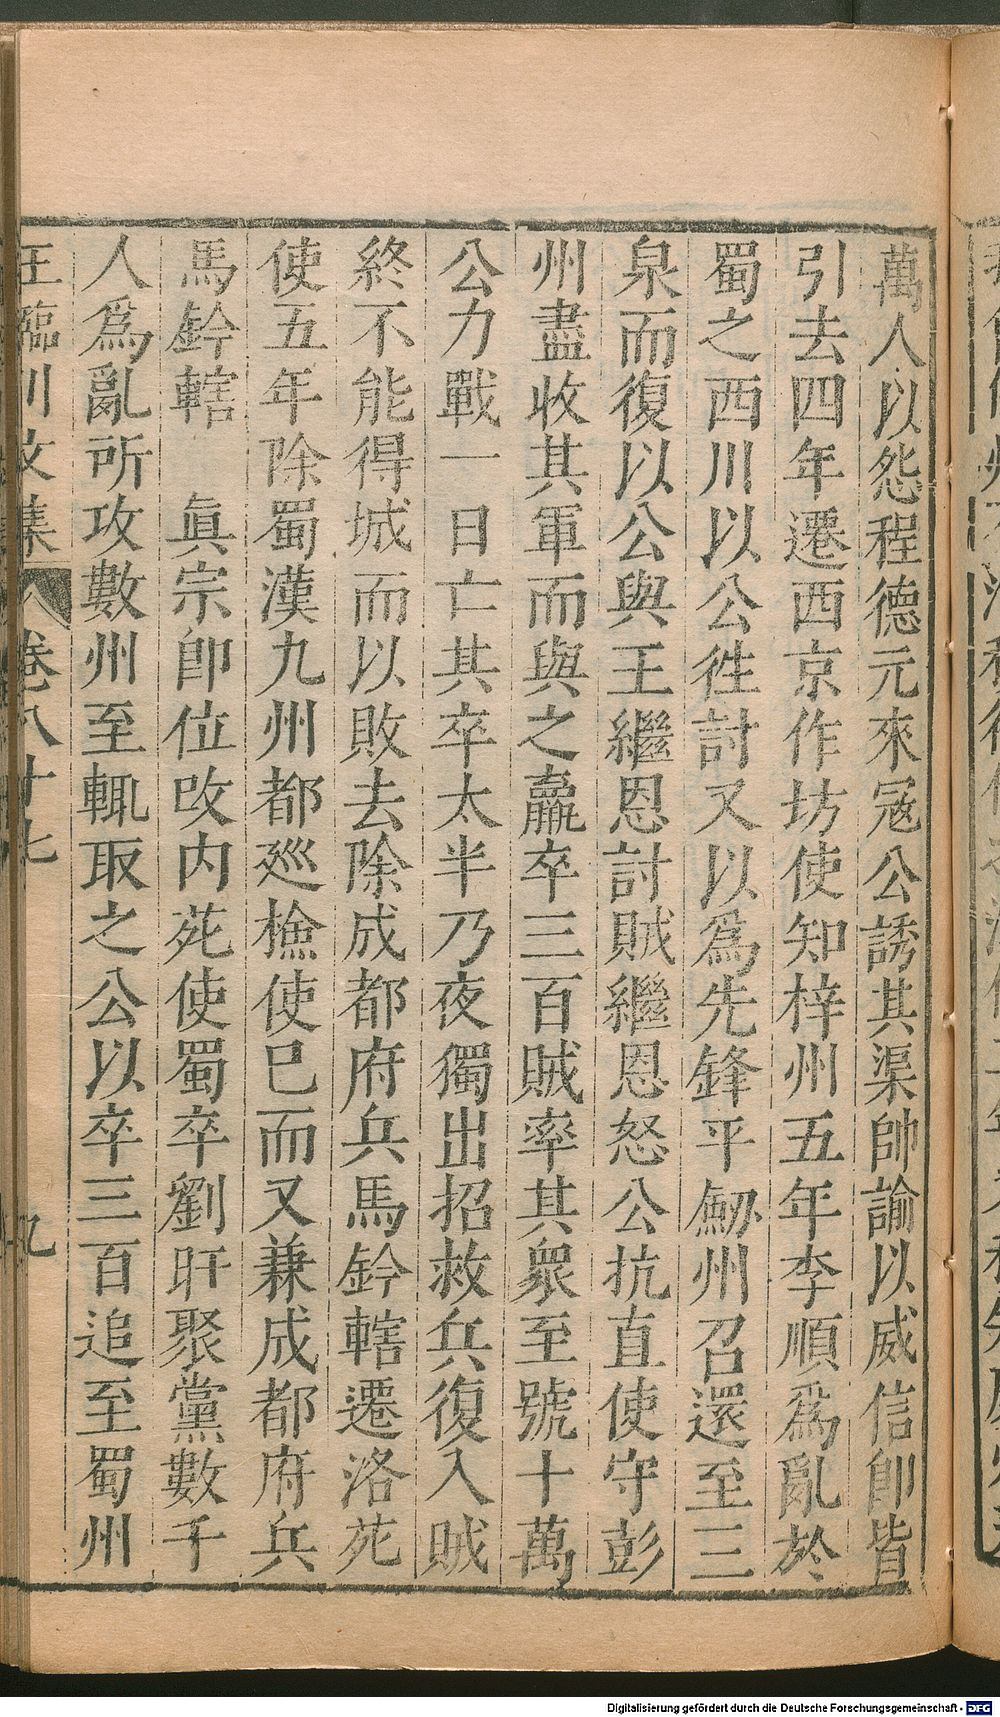 萬人以怨程德元來冦公誘其渠帥諭以威信卽皆
引去四年遷西京作坊使知梓州五年李順爲亂於
蜀之西川以公徃討又以爲先鋒平劒州召還至三
泉而復以公與王繼恩討賊繼恩怒公抗直使守彭
州盡收其軍而與之羸卒三百賊率其衆至號十萬
公力戰一日亡其卒太半乃夜獨出招救兵復入賊
終不能得城而以敗去除成都府兵馬鈐轄遷洛苑
使五年除蜀漢九州都巡檢使巳而又兼成都府兵
馬鈐轄　眞宗卽位改内苑使蜀卒劉旰聚黨數千
人爲亂所攻數州至輒取之公以卒三百追至蜀州
王臨川文集　卷八十七　九
Digitalisierung gefördert durch die Deutsche Forschungsgemeinschaft - DFG